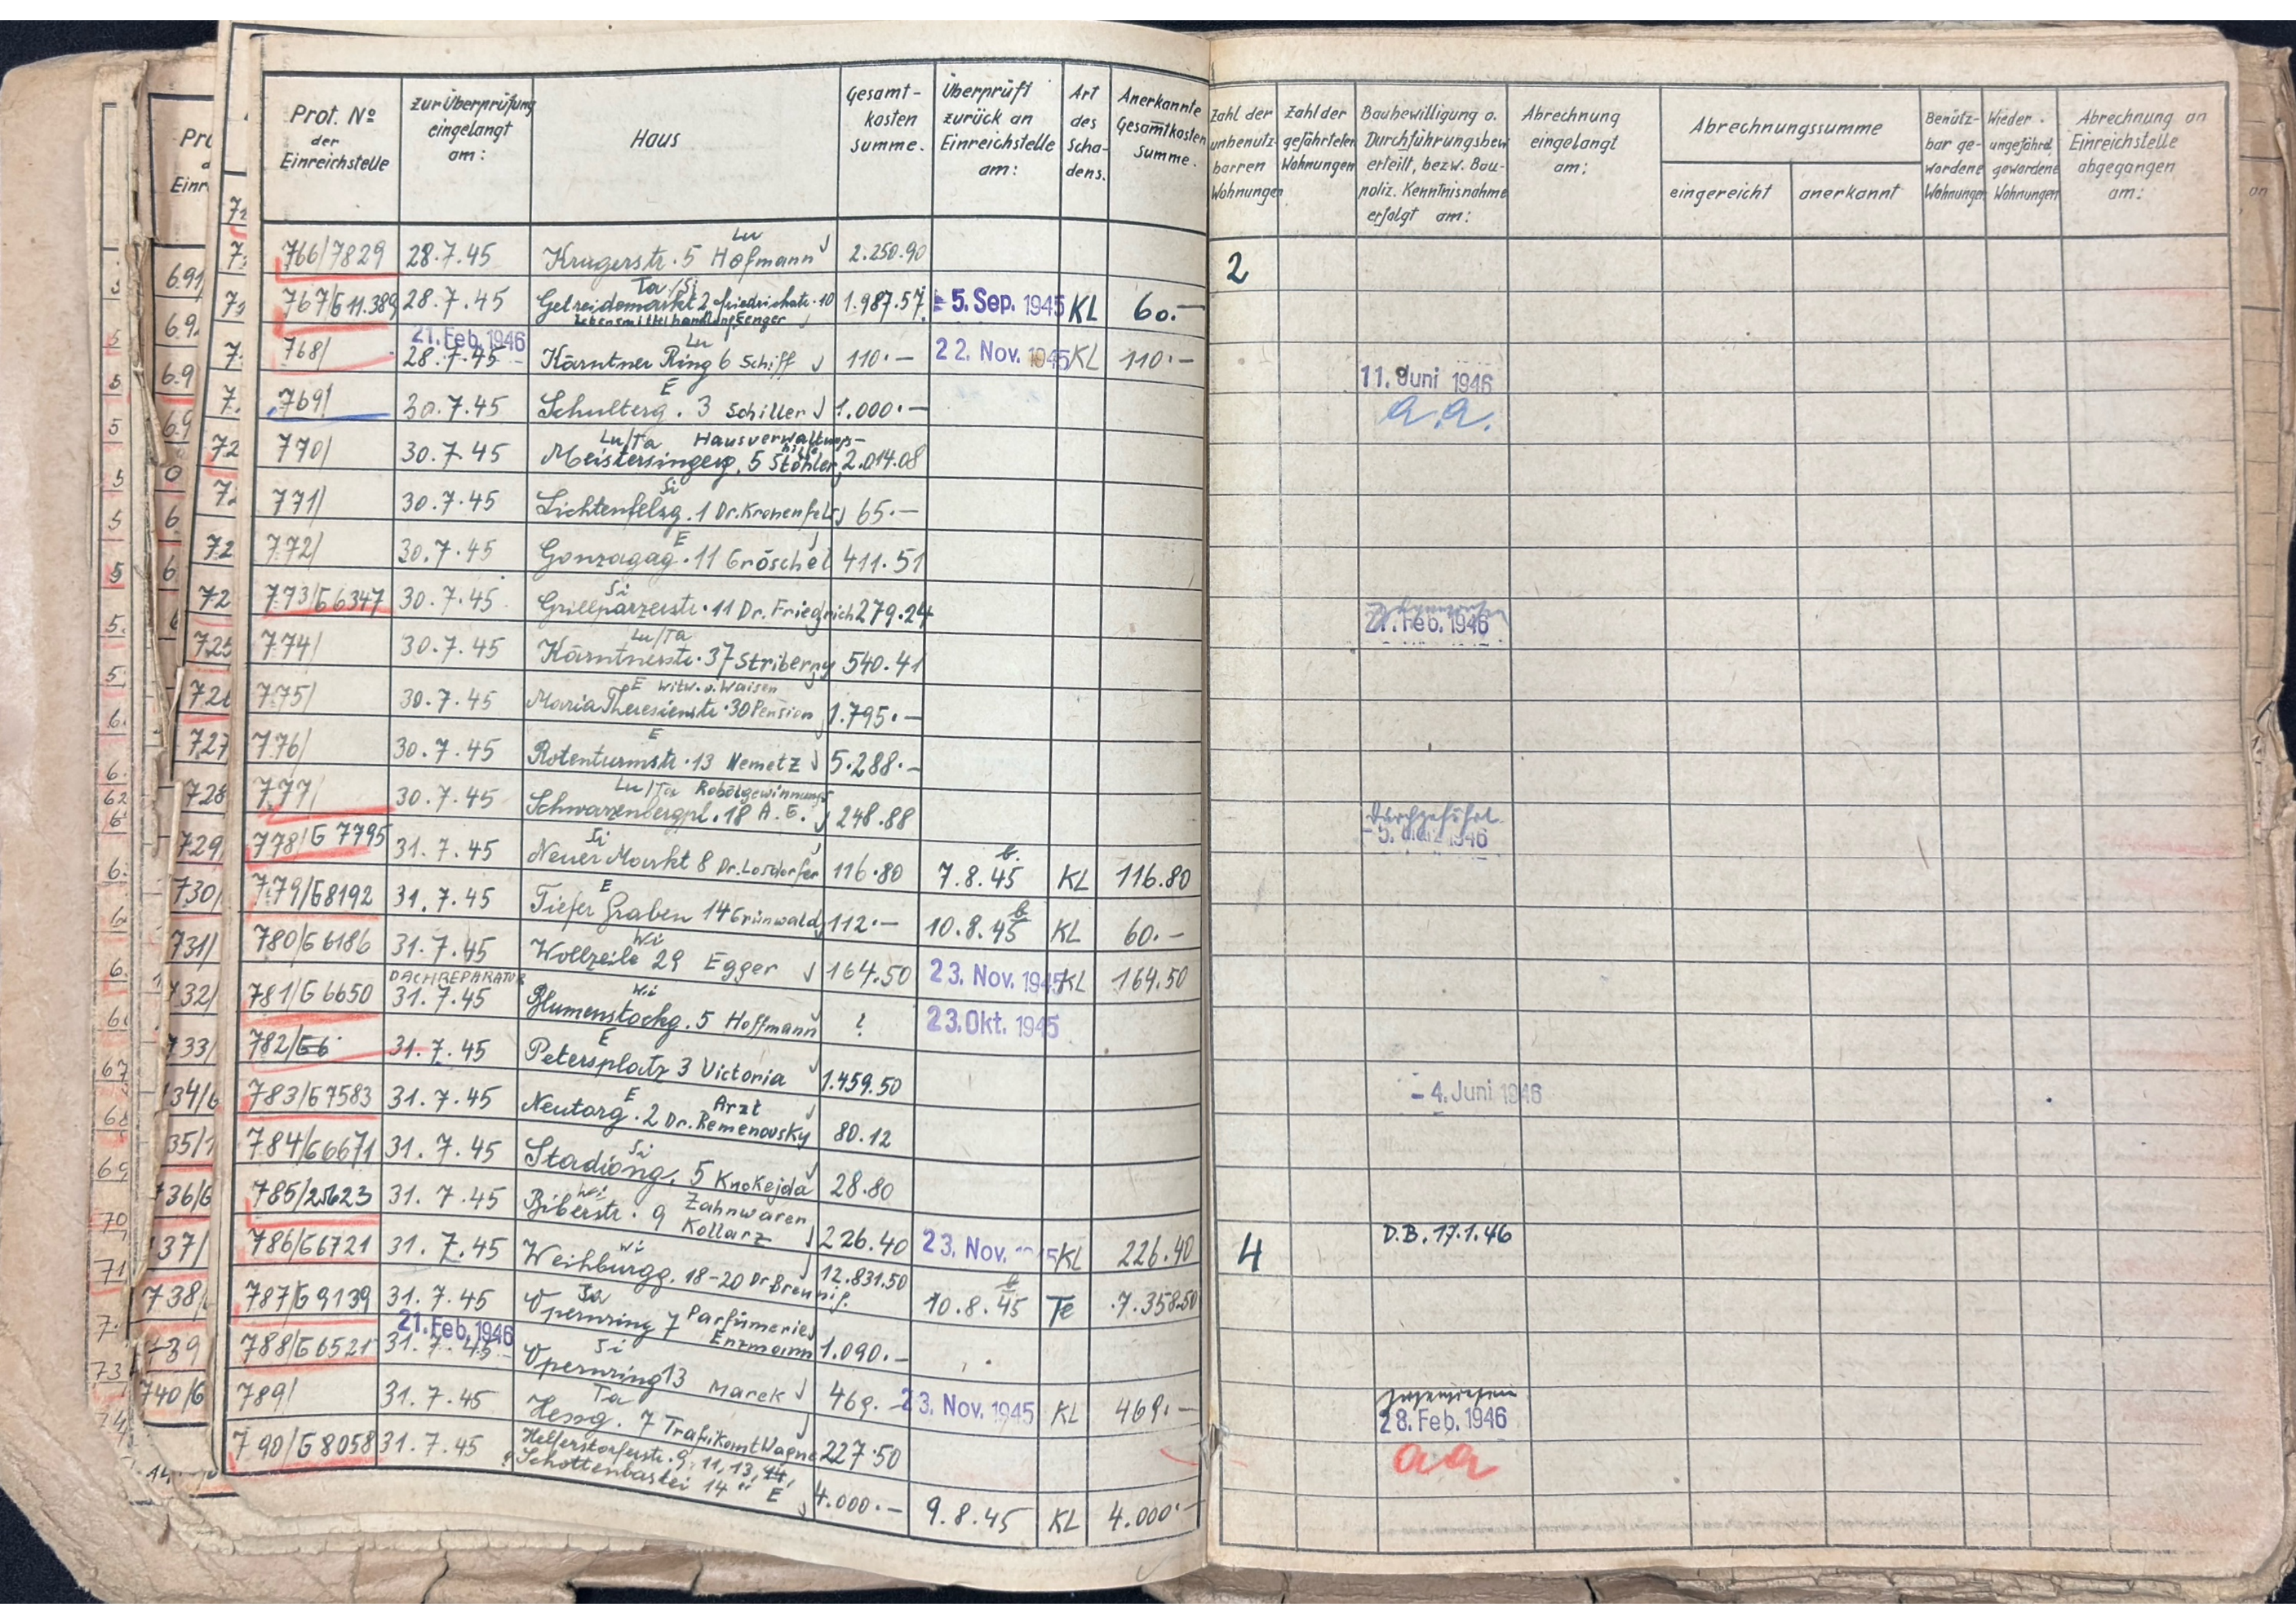 Prot. Nº der Einreichstelle
zur Überprüfung eingelangt am:
Haus
Gesamt-kosten summe.
Überprüft zurück an Einreichstelle am:
Art des Scha-dens.
Anerkannte Gesamtkosten Summe.
Zahl der unbenutz-barren Wohnungen
Zahl der gefährteten Wohnungen
Baubewilligung o. Durchführungsbew erteilt, bezw. Bau-poliz. Kenntnisnahme erfolgt am:
Abrechnung eingelangt am:
Abrechnungssumme
eingereicht
anerkannt
Benütz-bar ge-wordene Wohnungen
Wieder ungefährd. gewordene Wohnungen
Abrechnung an Einreichstelle abgegangen am:
766/7829 28.7.45 Krugerstr. 5 Hofmann Lu 2.250.90 2
767/G 11.389 28.7.45 Getreidemarkt 2 Friedrichstr. 10 Ta/Si Lebensmittelhandlung Fenger 1.987.57 - 5. Sep. 1945 KL 60.-
768/ 21. Feb. 1946 28.7.45 Kärntner Ring 6 Schiff Lu 110.- 22. Nov. 1945 KL 110.- 11. Juni 1946
769/ 30.7.45 Schulterg. 3 Schiller E 1.000.- a.a.
770/ 30.7.45 Meistersingerg. 5 Stöhler Lu/Ta Hausverwaltungs- 2.014.08
771/ 30.7.45 Lichtenfelsg. 1 Dr. Kronenfels Si 65.-
772/ 30.7.45 Gonzagag. 11 Gröschel E 411.51
773/G 6347 30.7.45 Grillparzerstr. 11 Dr. Friedrich Si 279.24 21. Feb. 1946
774/ 30.7.45 Kärntnerstr. 37 Striberny Lu/Ta 540.41
775/ 30.7.45 Maria Theresienstr. 30 Pension E Witw. u. Waisen 1.795.-
776/ 30.7.45 Rotenturmstr. 13 Nemetz E 5.288.-
777/ 30.7.45 Schwarzenbergpl. 18 A.G. Lu/Ta Rohölgewinnungs 248.88 durchgeführt - 5. März 1946
778/G 7795 31.7.45 Neuer Markt 8 Dr. Losdorfer Si 116.80 7.8.45 b. KL 116.80
779/G8192 31.7.45 Tiefer Graben 14 Grünwald E 112.- 10.8.45 b KL 60.-
780/G 6186 31.7.45 Wollzeile 29 Egger Wi 164.50 23. Nov. 1945 KL 164.50
781/G 6650 DACHREPARATUR 31.7.45 Blumenstockg. 5 Hoffmann Wi ? 23. Okt. 1945
782/G6 31.7.45 Petersplatz 3 Victoria E 1.459.50
783/G7583 31.7.45 Neutorg. 2 Dr. Remenovsky E Arzt 80.12 - 4. Juni 1946
784/G6671 31.7.45 Stadiong. 5 Knokejda Si 28.80
785/25623 31.7.45 Biberstr. 9 Zahnwaren Kollarz Wi 226.40 23. Nov. 1945 KL 226.40
786/G6721 31.7.45 Weihburgg. 18-20 Dr. Breunig. Wi 12.831.50 10.8.45 b Te 7.358.50 4 D.B. 17.1.46
787/G 9139 31.7.45 Opernring 7 Parfümerie Enzmann Ta 1.090.-
788/G 6521 21. Feb. 1946 31.7.45 Opernring 13 Marek Si 469.- 23. Nov. 1945 KL 469.-
789/ 31.7.45 Hessg. 7 Trafikant Wagner Ta 227.50 28. Feb. 1946
790/G 8058 31.7.45 Helferstorferstr. 9, 11, 13, 14, Schottenbastei 14 E 4.000.- 9.8.45 KL 4.000.- aa